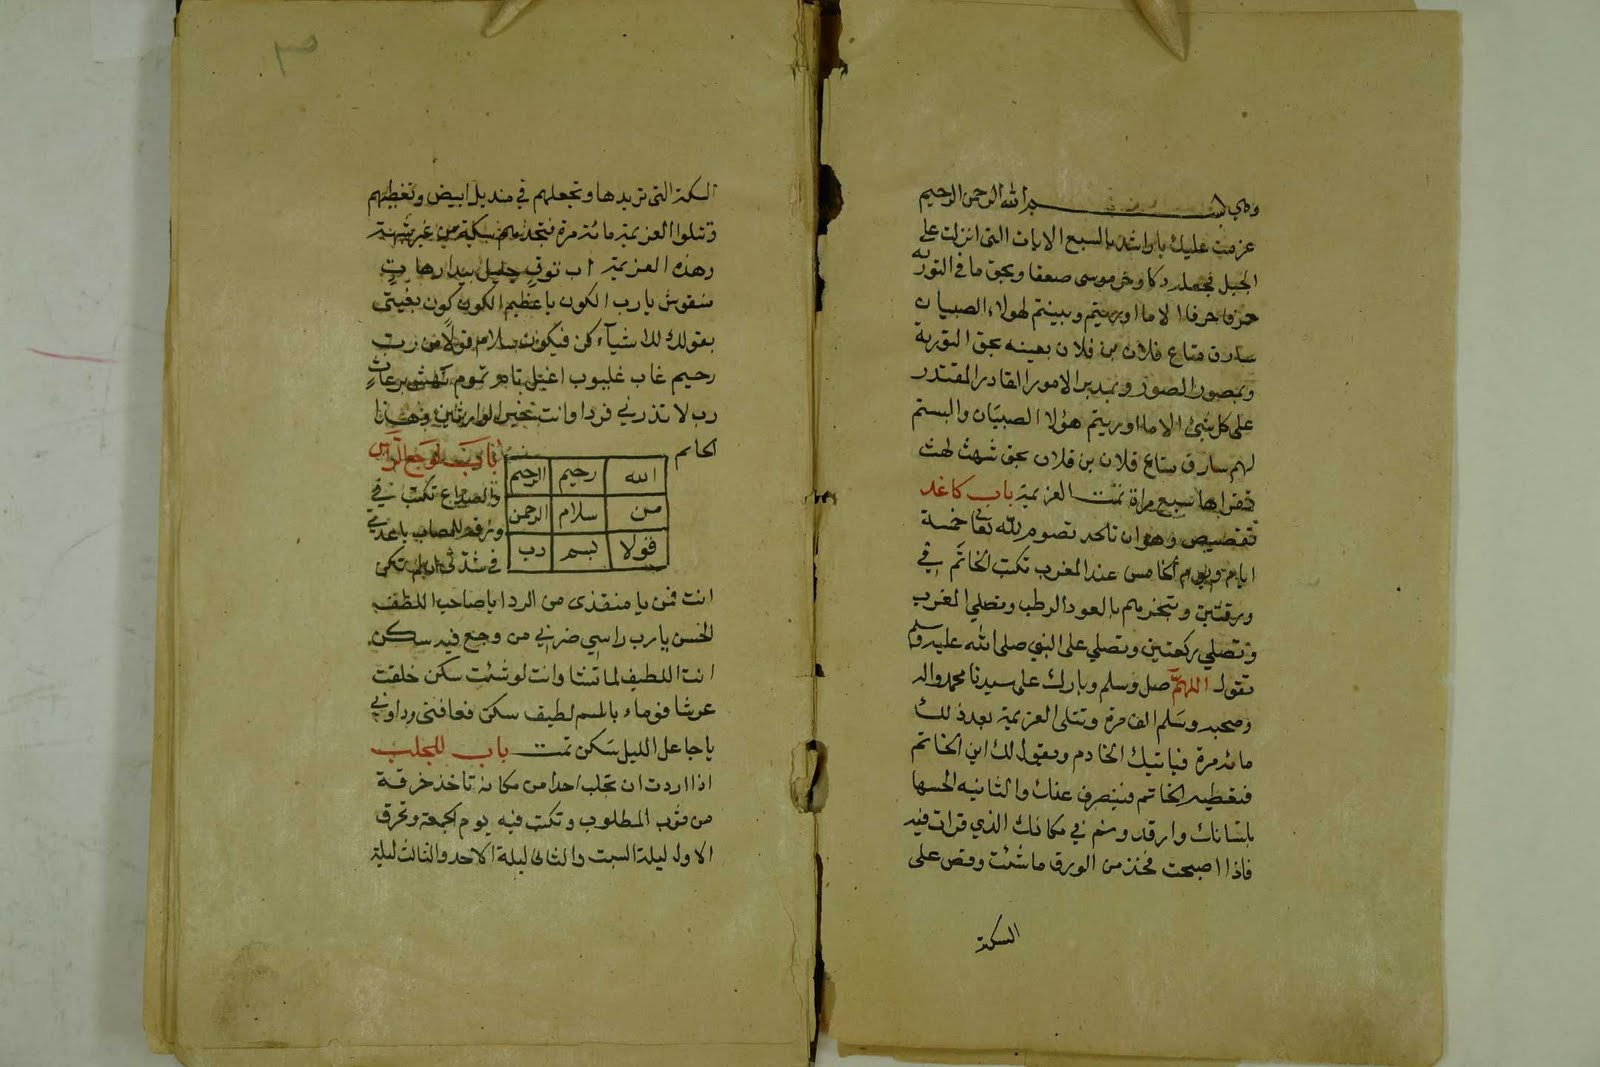 وهي بسم الله الرحمن الرحيم
عزمت عليك يا راشد بالسبع الايات التي انزلت على
الجبل فجعله دكا وخر موسى صعقا وبحق ما في التورية
حرفا حرفا الا ما اوريتم وبينتم لهولاء الصبيان
سارق متاع فلان بن فلان بعينه بحق التورية
وبمصور الصور وبمدبر الامور القادر المقتدر
على كل شئ الا ما اوريتم هؤلا الصبيان والبستم
لهم سارق متاع فلان بن فلان بحق شهث لهث
تقراها سبع مراة تمت العزيمة باب كاغد
تقصيص وهو ان تصوم لله تعالى خمسة
ايام ويوم الخامس عند المغرب تكتب الخاتم في
ورقتين وتبخرهم بالعود الرطب وتصلي المغرب
وتصلي ركعتين وتصلي على النبي صلى الله عليه وسلم
تقول اللهم صل وسلم وبارك على سيدنا محمد واله
وصحبه وسلم الف مرة وتتلى العزيمة بعد ذلك
مائة مرة فياتيك الخادم ويقول لك اين الخاتم
فتعطيه الخاتم فينصرف عنك والثانيه الحسها
بلسانك وارقد ونم في مكانك الذي قرات فيه
فاذا اصبحت فخذ من الورق ما شئت وقص على
السكة
السكة التي تريدها وتجعلهم في منديل ابيض وتغطيهم
وتتلوا العزيمة مائة مرة فتجدهم سكة من غير شبهة
وهذه العزيمة اب توقي جليل
منقوش يا رب الكون يا عظيم الكون كون بغيتي
بقولك للاشياء كن فيكون سلام قولا من رب
رحيم غاب غليوب
رب لا تذرني فردا وانت خير الوارثين وهذا
الخاتم
باب لوجع الراس
الله رحيم الرحيم
والصداع تكتب في
من سلام الرحمن
قولا بسم رب
في شدتي
انت فمن يا منقذي من الردا يا صاحب اللطف
الحسن يا رب راسي ضرني من وجع فيه سكن
انت اللطيف لما تشا وانت لو شئت سكن خلقت
عرشا فوق ماء بالاسم لطيف سكن فعافني وداوني
يا جاعل الليل سكن تمت باب للجلب
اذا اردت ان تجلب احدا من مكانه تاخذ خرقة
من ثوب المطلوب وتكتب فيه يوم الجمعة وتحرق
الاول ليلة السبت والثاني ليلة الاحد والثالث ليلة